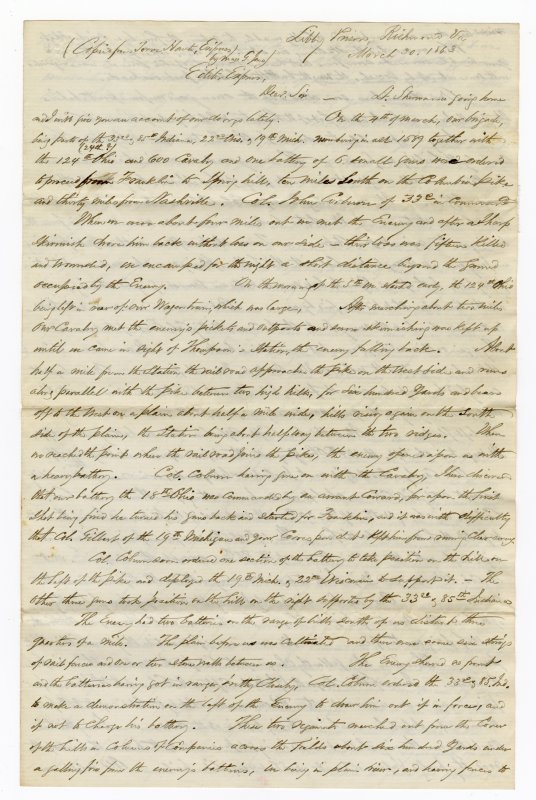 Libby Prison, Richmond Va.
March 30, 1863
(Copied for Terre Haute Express)
by
Editor Express,
Dear Sir — Lt. Shumard is going home
and I will give you an account of our doings lately. On the 4th of March, our brigade,
being parts of the 33rd, 85th Indiana, 22nd Wis, & 19th Mich. numbering in all 1589 together with
the 124th Ohio and 600 Cavalry and one battery of 6 small guns was ordered
to proceed from Franklin to Spring hill, ten miles South on the Columbia Pike
and thirty miles from Nashville. Col. John Coburn of 33rd in Command
When we were about four miles out we met the Enemy and after a Sharp
Skirmish drove him back without loss on our side — their loss was fifteen Killed
and wounded, we encamped for the night a short distance beyond the ground
occupied by the Enemy. On the morning of the 5th we started early, the 124th Ohio
being left in rear of our Wagon train, which was large. After marching about two miles
Our Cavalry met the enemy's pickets and outposts and some skirmishing was kept up
until we came in sight of Thompson's Station, the enemy falling back. About
half a mile from the Station the railroad approaches the pike on the West side and runs
along parallel with the pike between two high hills, for six hundred Yards and bears
off to the West on a plain about half a mile wide, hills rising again on the South
side of the plain, the Station being about halfway between the two ridges. When
we reached the point where the railroad joins the pike, the enemy opened upon us with
a heavy battery. Col. Coburn having gone on with the Cavalry,
that our battery the 18th Ohio was Commanded by an arrant Coward, for upon the first
Shot being fired he turned his guns back and started for Franklin, and it was with difficulty
that Col. Gilbert of the 19th Michigan and your Correspondent kept him from running clear away.
Col. Coburn soon ordered one section of the battery to take position on the hill on
the left of the pike and deployed the 19th Mich. & 22nd Wisconsin to support it. — The
other three guns took position on the hills on the right supported by the 33rd & 85th Indiana
The Enemy had two batteries on the range of hills South of us distant three
quarters of a mile. The plain before us was cultivated and there were some six strings
of rail fences and one or two stone walls between us. The Enemy showed no front
and the batteries having got in range Col. Coburn ordered the 33rd & 85 Ind.
to make a demonstration on the left of the Enemy to draw him out if in force, and
if not to Charge his battery. These two Regiments marched out from the Cover
of the hills in Columns of Companies across the fields about six hundred Yards under
a galling fire from the enemy's batteries, we being in plain view, and having fences to